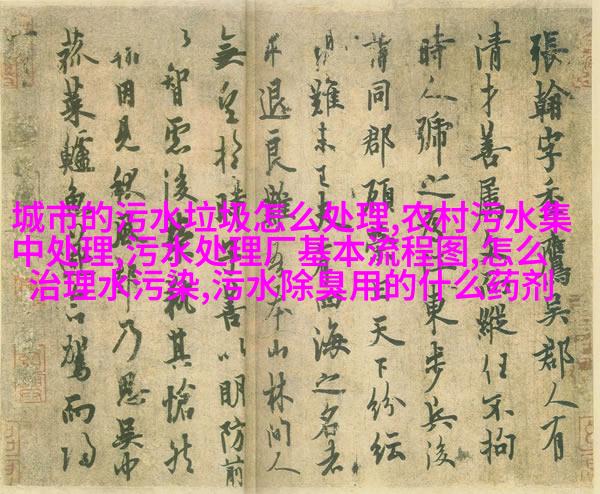 城市的污水垃圾怎么处理,农村污水集
中处理,污水处理厂基本流程图,怎么
治理水污染,污水除臭用的什么药剂
張翰字季鷹吳郡人有
清才善屬而縱任不拘
時人號之東步兵後
同郡顧曰天下紛紜
難未已夫四海之名者
求退良難本山林間人
無望於時善以明防前
智慮後執其愴然
翰因見秋風乃思吳中
菰菜鱸魚命駕而歸